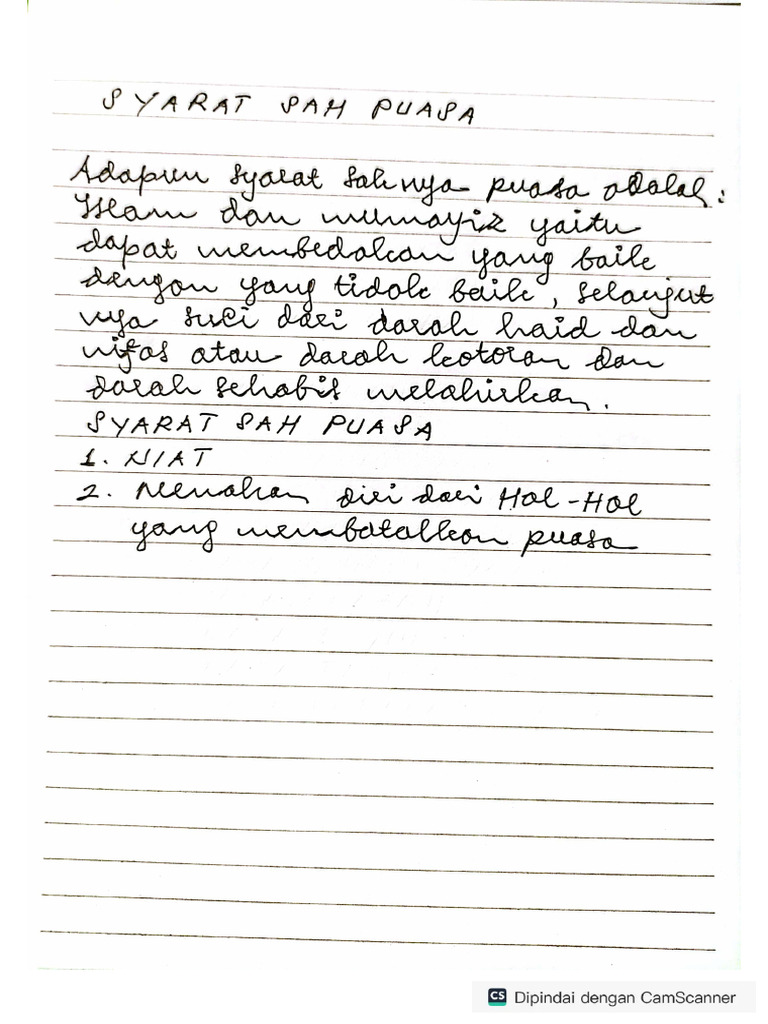 SYARAT SAH PUASA
Adapun syarat sahnya puasa adalah :
Islam dan mumayiz yaitu
dapat membedakan yang baik
dengan yang tidak baik, selanjut
nya suci dari darah haid dan
nifas atau darah kotoran dan
darah sehabis melahirkan.
SYARAT SAH PUASA
1. NIAT
2. Menahan diri dari Hal-Hal
yang membatalkan puasa
CS Dipindai dengan CamScanner